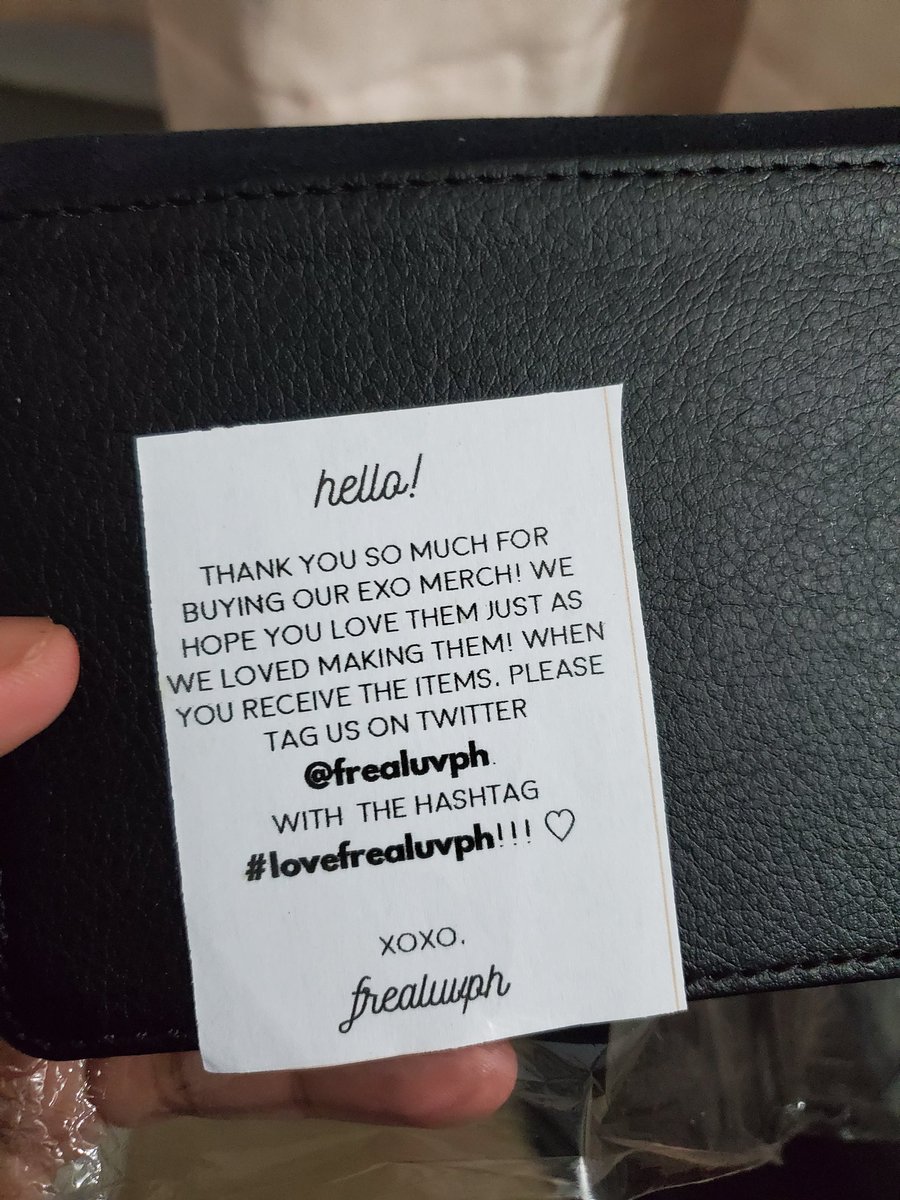 hello!
THANK YOU SO MUCH FOR
BUYING OUR EXO MERCH! WE
HOPE YOU LOVE THEM JUST AS
WE LOVED MAKING THEM! WHEN
YOU RECEIVE THE ITEMS. PLEASE
TAG US ON TWITTER
@frealuvph.
WITH THE HASHTAG
#lovefrealuvph!!! ♡
XOXO.
frealuvph